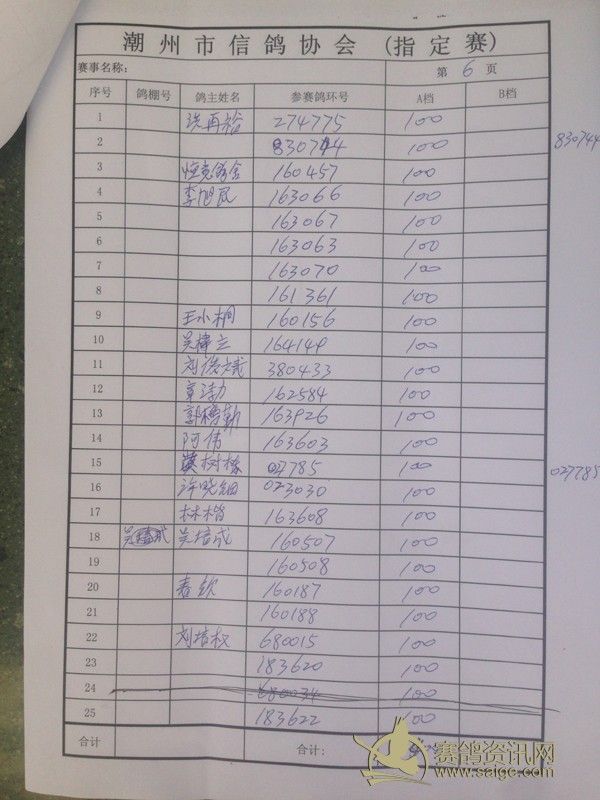 潮州市信鸽协会 (指定赛)
赛事名称: 第 6 页
序号 鸽棚号 鸽主姓名 参赛鸽环号 A档 B档
1 洪再裕 274775 100
2 830744 100 830744
3 160457 100
4 李旭民 163066 100
5 163067 100
6 163063 100
7 163070 100
8 161361 100
9 王小桐 160156 100
10 164149 100
11 380433 100
12 162584 100
13 163926 100
14 阿伟 163603 100
15 树栋 027785 100 027785
16 许晓钿 023030 100
17 林楷 163608 100
18 吴培成 160507 100
19 160508 100
20 春钦 160187 100
21 160188 100
22 刘培权 680015 100
23 183620 100
24 680034 100
25 183622 100
合计 合计:
赛鸽资讯网
www.saige.com